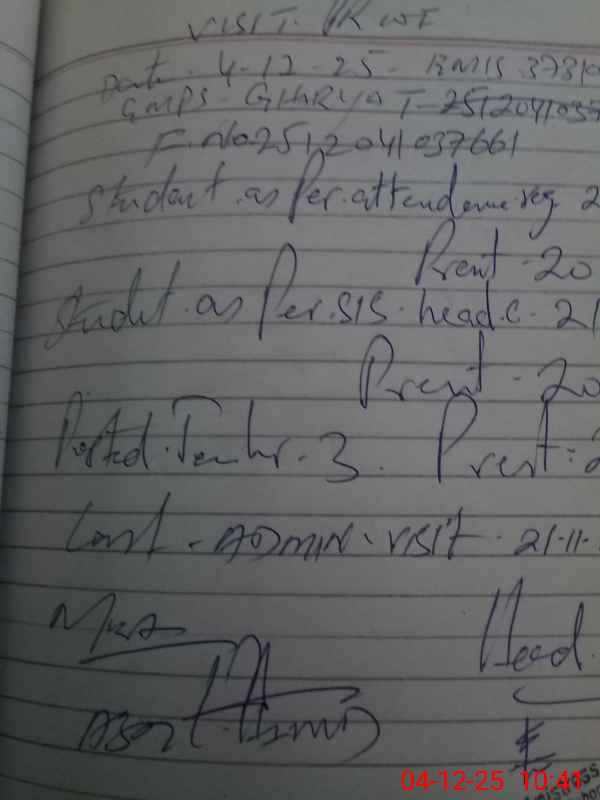 VISIT.
Date. 4-12-25- EMIS 3731
GMPS- GHARYAT-
F.No 2512041037661
Student.as Per.attendance.reg 2
Prent - 20
Studet.as Per.SIS.head.c. 21
Prent - 20
Posted.Teachr-3. Prest:2
Last-ADMIN.VISIT. 21.11.
MEA
Head.
04-12-25 10:41